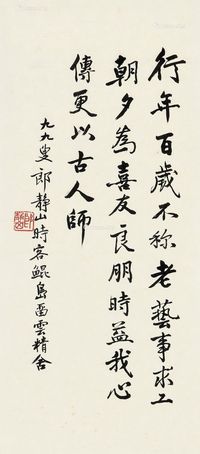 行年百歲不称老藝事求工
朝夕為喜友良朋時益我心
傳更以古人師
九九叟郎靜山時客鯤島留雲精舍